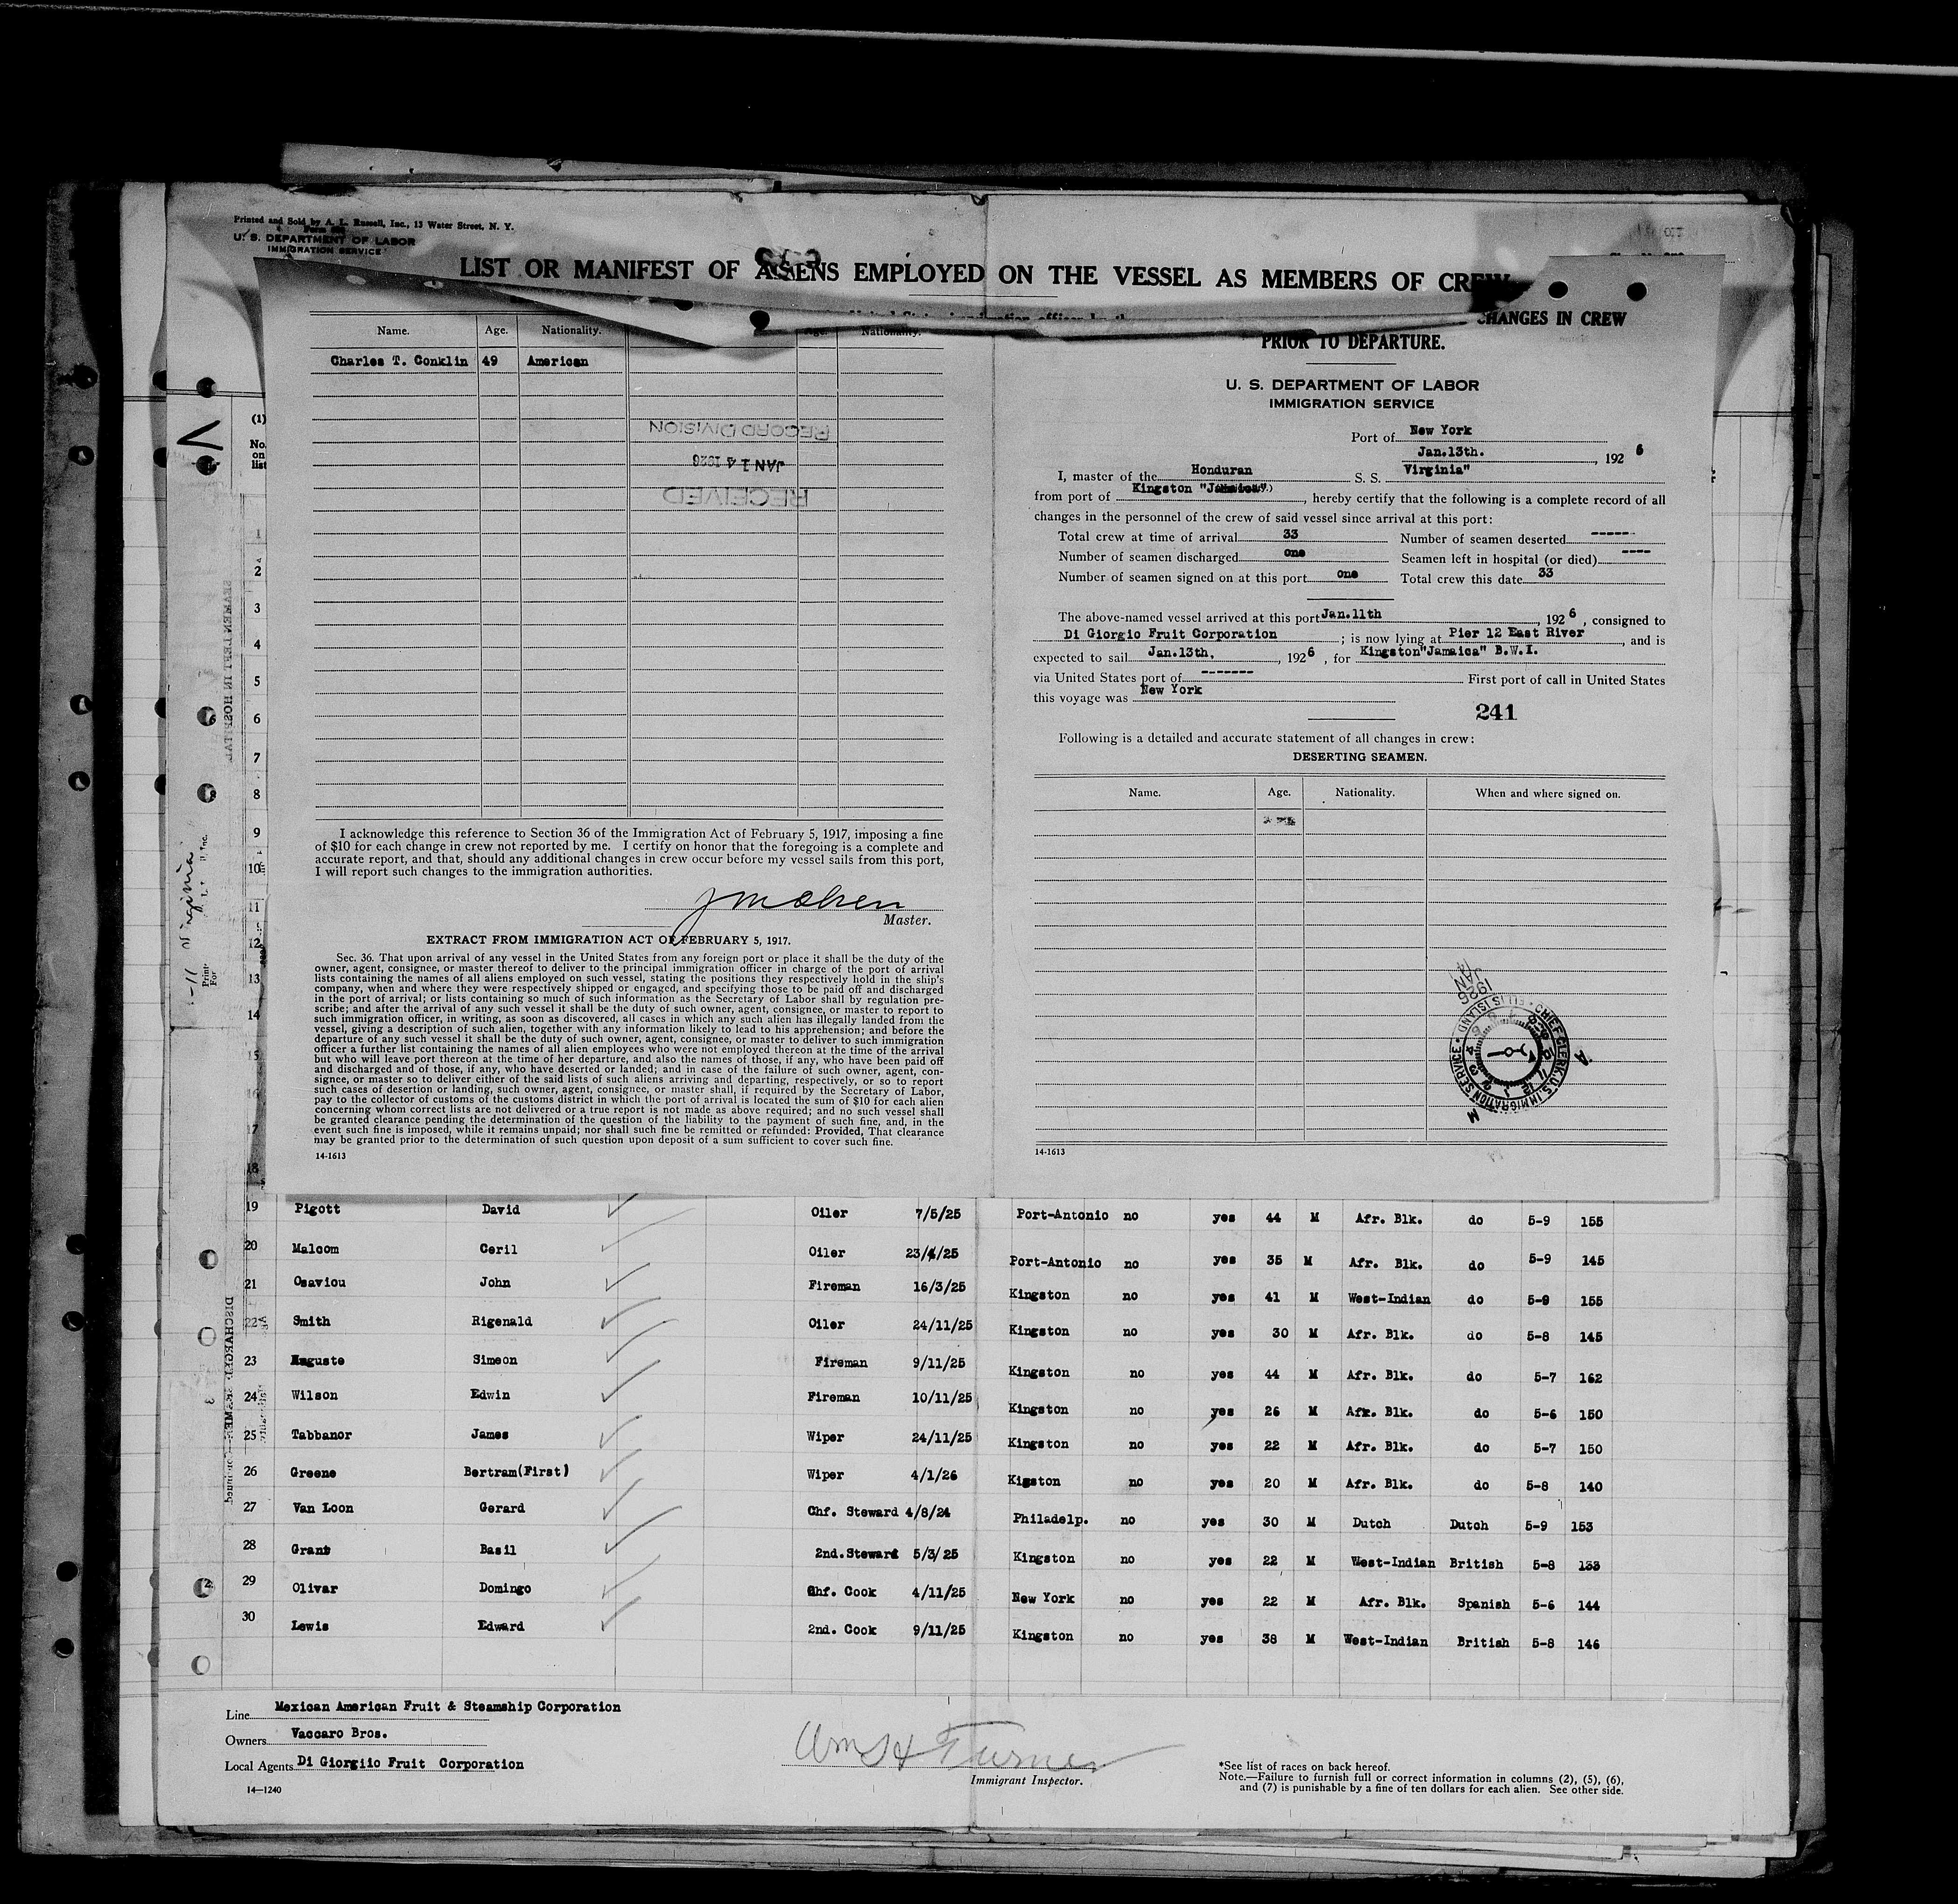 Printed and Sold by A. L. Russell, Inc., 13 Water Street, N. Y.
U. S. DEPARTMENT OF LABOR
IMMIGRATION SERVICE
LIST OR MANIFEST OF ALIENS EMPLOYED ON THE VESSEL AS MEMBERS OF CREW
Name. Age. Nationality. Age. Nationality.
Charles T. Conklin 49 American
RECORD DIVISION
JAN 14 1926
RECEIVED
I acknowledge this reference to Section 36 of the Immigration Act of February 5, 1917, imposing a fine
of $10 for each change in crew not reported by me. I certify on honor that the foregoing is a complete and
accurate report, and that, should any additional changes in crew occur before my vessel sails from this port,
I will report such changes to the immigration authorities.
Master.
EXTRACT FROM IMMIGRATION ACT OF FEBRUARY 5, 1917.
Sec. 36. That upon arrival of any vessel in the United States from any foreign port or place it shall be the duty of the
owner, agent, consignee, or master thereof to deliver to the principal immigration officer in charge of the port of arrival
lists containing the names of all aliens employed on such vessel, stating the positions they respectively hold in the ship's
company, when and where they were respectively shipped or engaged, and specifying those to be paid off and discharged
in the port of arrival; or lists containing so much of such information as the Secretary of Labor shall by regulation pre-
scribe; and after the arrival of any such vessel it shall be the duty of such owner, agent, consignee, or master to report to
such immigration officer, in writing, as soon as discovered, all cases in which any such alien has illegally landed from the
vessel, giving a description of such alien, together with any information likely to lead to his apprehension; and before the
departure of any such vessel it shall be the duty of such owner, agent, consignee, or master to deliver to such immigration
officer a further list containing the names of all alien employees who were not employed thereon at the time of the arrival
but who will leave port thereon at the time of her departure, and also the names of those, if any, who have been paid off
and discharged and of those, if any, who have deserted or landed; and in case of the failure of such owner, agent, con-
signee, or master so to deliver either of the said lists of such aliens arriving and departing, respectively, or so to report
such cases of desertion or landing, such owner, agent, consignee, or master shall, if required by the Secretary of Labor,
pay to the collector of customs of the customs district in which the port of arrival is located the sum of $10 for each alien
concerning whom correct lists are not delivered or a true report is not made as above required; and no such vessel shall
be granted clearance pending the determination of the question of the liability to the payment of such fine, and, in the
event such fine is imposed, while it remains unpaid; nor shall such fine be remitted or refunded: Provided, That clearance
may be granted prior to the determination of such question upon deposit of a sum sufficient to cover such fine.
14-1613
CHANGES IN CREW
PRIOR TO DEPARTURE.
U. S. DEPARTMENT OF LABOR
IMMIGRATION SERVICE
Port of New York
Jan.13th. , 192 6
I, master of the Honduran S. S. Virginia"
from port of Kingston "Jamaica" , hereby certify that the following is a complete record of all
changes in the personnel of the crew of said vessel since arrival at this port:
Total crew at time of arrival 33 Number of seamen deserted ------
Number of seamen discharged one Seamen left in hospital (or died) ----
Number of seamen signed on at this port one Total crew this date 33
The above-named vessel arrived at this port Jan.11th , 192 6 , consigned to
Di Giorgio Fruit Corporation ; is now lying at Pier 12 East River , and is
expected to sail Jan.13th, , 192 6 , for Kingston"Jamaica" B.W.I.
via United States port of ------- First port of call in United States
this voyage was New York
241
Following is a detailed and accurate statement of all changes in crew:
DESERTING SEAMEN.
Name. Age. Nationality. When and where signed on.
1926
JAN
14
CHIEF CLERK, U.S. IMMIGRATION SERVICE • ELLIS ISLAND
A
M
14-1613
(1)
No.
on
list
1
2
3
4
5
6
7
8
9
10
11
12
13
14
15
16
17
18
19 Pigott David Oiler 7/5/25 Port-Antonio no yes 44 M Afr. Blk. do 5-9 155
20 Malcom Ceril Oiler 23/4/25 Port-Antonio no yes 35 M Afr. Blk. do 5-9 145
21 Osaviou John Fireman 16/3/25 Kingston no yes 41 M West-Indian do 5-9 155
22 Smith Rigenald Oiler 24/11/25 Kingston no yes 30 M Afr. Blk. do 5-8 145
23 Auguste Simeon Fireman 9/11/25 Kingston no yes 44 M Afr. Blk. do 5-7 162
24 Wilson Edwin Fireman 10/11/25 Kingston no yes 26 M Afr. Blk. do 5-6 150
25 Tabbanor James Wiper 24/11/25 Kingston no yes 22 M Afr. Blk. do 5-7 150
26 Greene Bertram(First) Wiper 4/1/26 Kigston no yes 20 M Afr. Blk. do 5-8 140
27 Van Loon Gerard Chf. Steward 4/8/24 Philadelp. no yes 30 M Dutch Dutch 5-9 153
28 Grant Basil 2nd.Steward 5/3/25 Kingston no yes 22 M West-Indian British 5-8 133
29 Olivar Domingo Chf. Cook 4/11/25 New York no yes 22 M Afr. Blk. Spanish 5-6 144
30 Lewis Edward 2nd. Cook 9/11/25 Kingston no yes 38 M West-Indian British 5-8 146
Line Mexican American Fruit & Steamship Corporation
Owners Vaccaro Bros.
Local Agents Di Giorgiio Fruit Corporation
14—1240
Wm H Turner
Immigrant Inspector.
*See list of races on back hereof.
Note.—Failure to furnish full or correct information in columns (2), (5), (6),
and (7) is punishable by a fine of ten dollars for each alien. See other side.
SEAMEN LEFT IN HOSPITAL